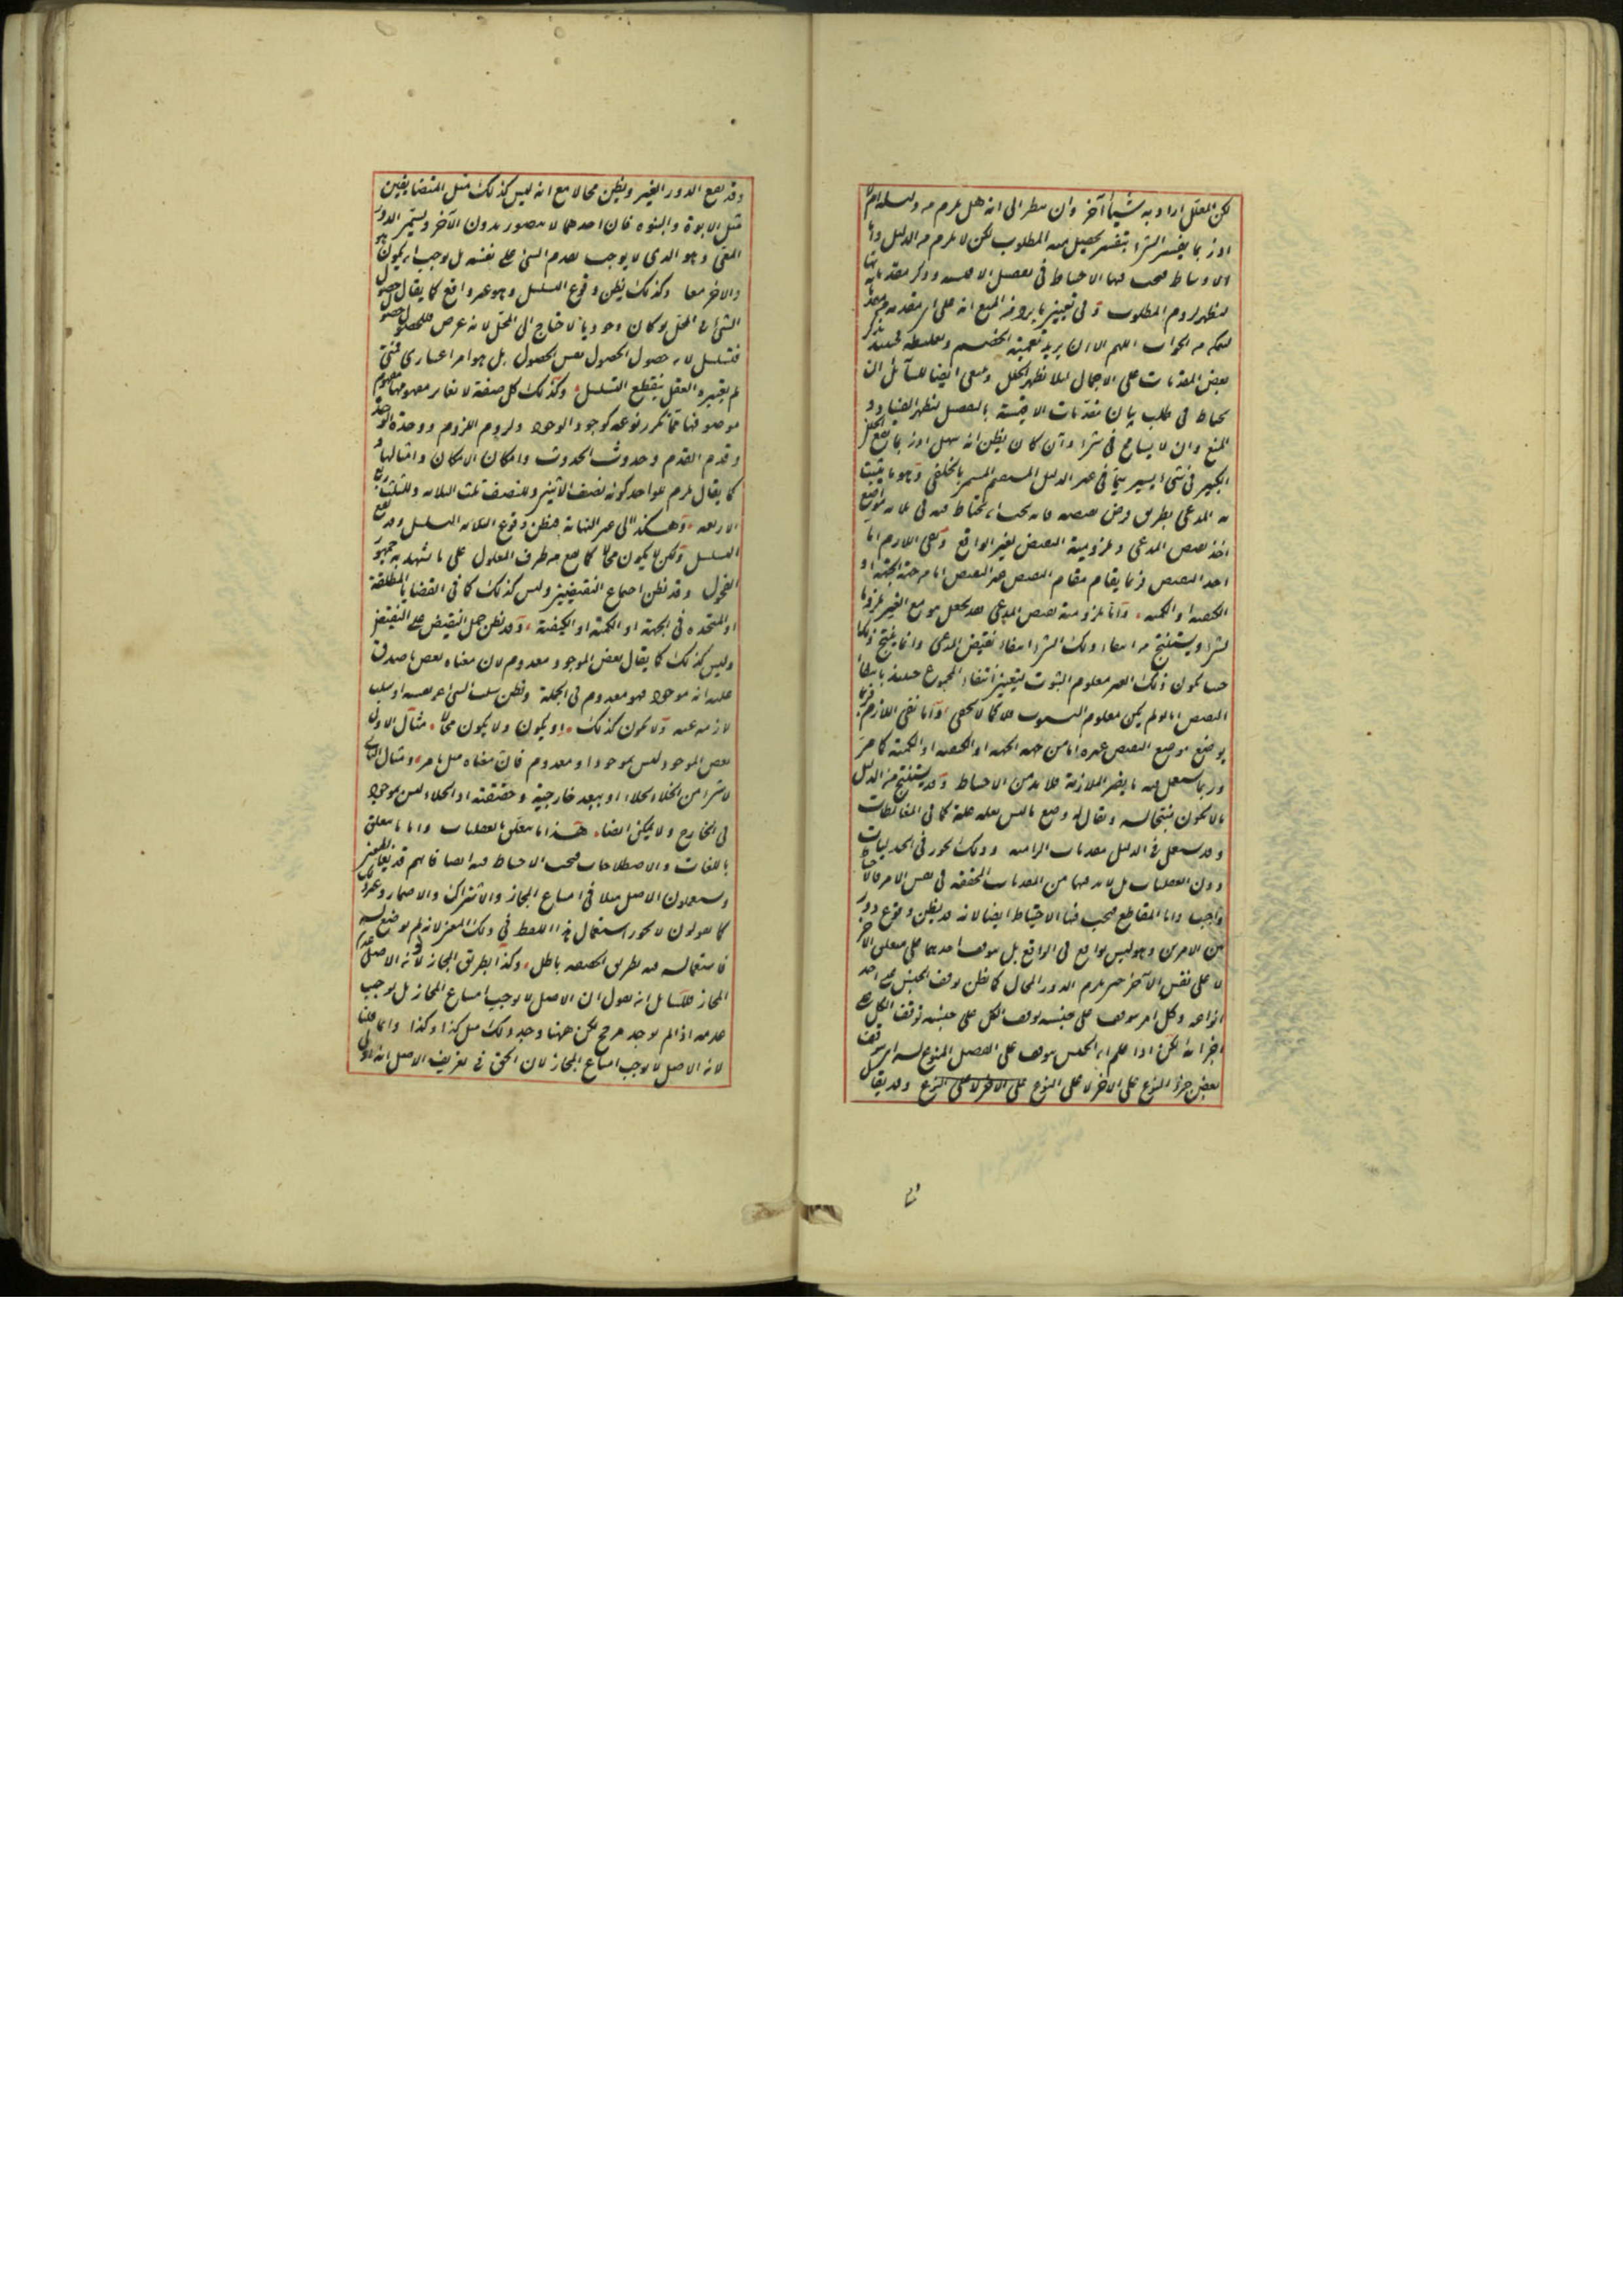 لكن المعلل اراد به شيئا آخر وان نظر الى انه هل يلزم من دليله ام لا
اذ ربما يفسر الشيء بتفسير يحصل منه المطلوب لكن لا يلزم من الدليل واما
الاوساط فيجب فيها الاحتياط فى تفصيل الاقيسة وذكر مقدماتها
ليظهر لزوم المطلوب وفى تعيين ما يرد فيه المنع انه على اى مقدمة
ليمكنه من الجواب اللهم الا ان يريد تعمية الخصم وتغليطه فحينئذ يذكر
بعض المقدمات على الاجمال لئلا يظهر الخلل وينبغى ايضا للسائل ان
يحتاط فى طلب بيان مقدمات الاقيسة بالتفصيل ليظهر الفساد و
المنع وان لا يسامح فى شىء وان كان يظن انه سهل اذ ربما يقع الخلل
الكبير فى شىء يسير سيما فى غير الدليل المستقيم المسمى بالخلفى وهو ما يثبت
به المدعى بطريق فرض نقيضه فانه يجب ان يحتاط فيه فى ثلاثة مواضع
اخذ نقيض المدعى وملزومية النقيض لغير الواقع ونفى اللازم اما
اخذ النقيض فربما يقام مقام النقيض غير النقيض اما من جهة الجهة او
الكيفية او الكمية واما ملزومية نقيض المدعى فقد يجعل هو مع الغير ملزوما
لشىء ويستنتج من انتفاء ذلك الشىء انتفاء نقيض المدعى وانما ينتج ذلك
حيث يكون ذلك الغير معلوم الثبوت ليتعين انتفاء المجموع حينئذ بانتفاء
النقيض اما لو لم يكن معلوم الثبوت فلا كما لا يخفى واما نفى اللازم فربما
يوضع موضع النقيض غيره اما من جهة الجهة او الكيفية او الكمية كما مر
وربما يستعمل فيه ما يضر الملازمة فلا بد من الاحتياط وقد يستنتج من الدليل
ما لا يكون نتيجة له ويقال له وضع ما ليس بعلة علة كما فى المغالطات
وقد يستعمل فى الدليل مقدمات الزامية وذلك يجوز فى الجدليات
دون العقليات بل لا بد فيها من المقدمات المحققة فى نفس الامر فالاحتياط
واجب واما المقاطع فيجب فيها الاحتياط ايضا لانه قد يظن وقوع دور
بين الامرين وهو ليس بواقع فى الواقع بل يتوقف احدهما على متعلق الآخر
لا على نفس الآخر حتى يلزم الدور المحال كما يظن توقف الجنس على احد
انواعه وكل امر يتوقف على جنسه توقف الكل على جنسه توقف الكل على
اجزائه لكن اذا علم ان الجنس يتوقف على الفصل المنوع له اى يتوقف
بعض جزؤ النوع على الآخر لا على النوع على الآخر لا على النوع وقد يقال
وقد يقع الدور الغير ويظن محالا مع انه ليس كذلك مثل المتضايفين
مثل الابوة والبنوة فان احدهما لا يتصور بدون الآخر ويسمى الدور
المعى وهو الذى لا يوجب تقدم الشىء على نفسه بل يوجب ان يكون هو
والآخر معا وكذلك يظن وقوع التسلسل وهو غير واقع كما يقال حصول
الشىء فى المحل لو كان وجوديا لاحتاج الى المحل لانه عرض فللحصول حصول
فيتسلسل لان حصول الحصول نفس الحصول بل هو امر اعتبارى فمتى
لم يعتبره العقل ينقطع التسلسل وكذلك كل صفة لا تغاير مفهومها مفهوم
موصوفها مما تكرر نوعه كوجود الوجود ولزوم اللزوم ووحدة الوحدة
وقدم القدم وحدوث الحدوث وامكان الامكان وامثالها و
كما يقال يلزم للواحد كونه نصف الاثنين وللنصف ثلث الثلاثة وللثلث ربع
الاربعة وهكذا الى غير النهاية فيظن وقوع التسلسل وقد يقع
التسلسل ولكن لا يكون محالا كما يقع من طرف المعلول على ما شهد به جمهور
الفحول وقد يظن اجماع النقيضين وليس كذلك كما فى القضايا المطلقة
او المتحدة فى الجهة او الكمية او الكيفية وقد يظن حمل النقيض على النقيض
وليس كذلك كما يقال بعض الموجود معدوم لان معناه بعض ما صدق
عليه انه موجود فهو معدوم فى الجملة ويظن سلب الشىء عن نفسه او سلب
لازمه عنه ولا يكون كذلك او يكون ولا يكون محالا مثال الاول
بعض الموجود ليس بموجود او معدوم فان معناه مثل ما مر ومثال الثانى
لا شىء من الخلاء بخلاء او ببعد خارجية وحقيقته اذ الخلاء ليس بموجود
فى الخارج ولا يمكن ايضا هذا ما يتعلق بالعقليات واما ما يتعلق
باللغات والاصطلاحات فيجب الاحتياط فيه ايضا فانهم قد
ويستعملون الاصل مثلا فى امتناع المجاز والاشتراك والاضمار وغير ذلك
كما يقولون لا يجوز استعمال هذا اللفظ فى ذلك المعنى لانه لم يوضع له
فاستعماله فيه بطريق الحقيقة باطل وكذا بطريق المجاز لانه الاصل عدم
المجاز فللسائل انه يقول ان الاصل لا يوجب امتناع المجاز بل يوجب
عدمه اذا لم يوجد مرجح لكن ههنا وجد وذلك مثل كذا وكذا وانما قلنا
لانه الاصل لا يوجب امتناع المجاز لان الحق فى تعريف الاصل انه